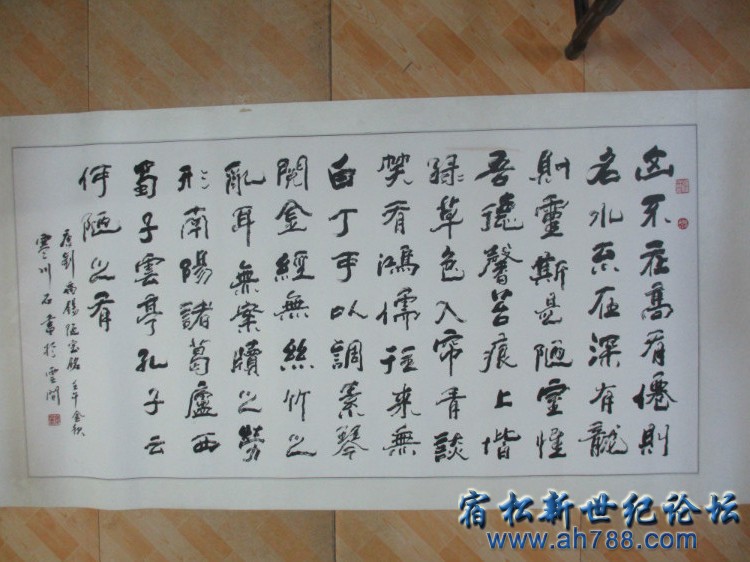 山不在高有僊則
名水不在深有龍
則靈斯是陋室惟
吾德馨苔痕上階
綠草色入帘青談
笑有鴻儒往來無
白丁可以調素琴
閱金經無絲竹之
亂耳無案牘之勞
形南陽諸葛廬西
蜀子雲亭孔子云
何陋之有
唐劉禹錫陋室銘壬午金秋
寒川石書於雲間
宿松新世纪论坛
www.ah788.com